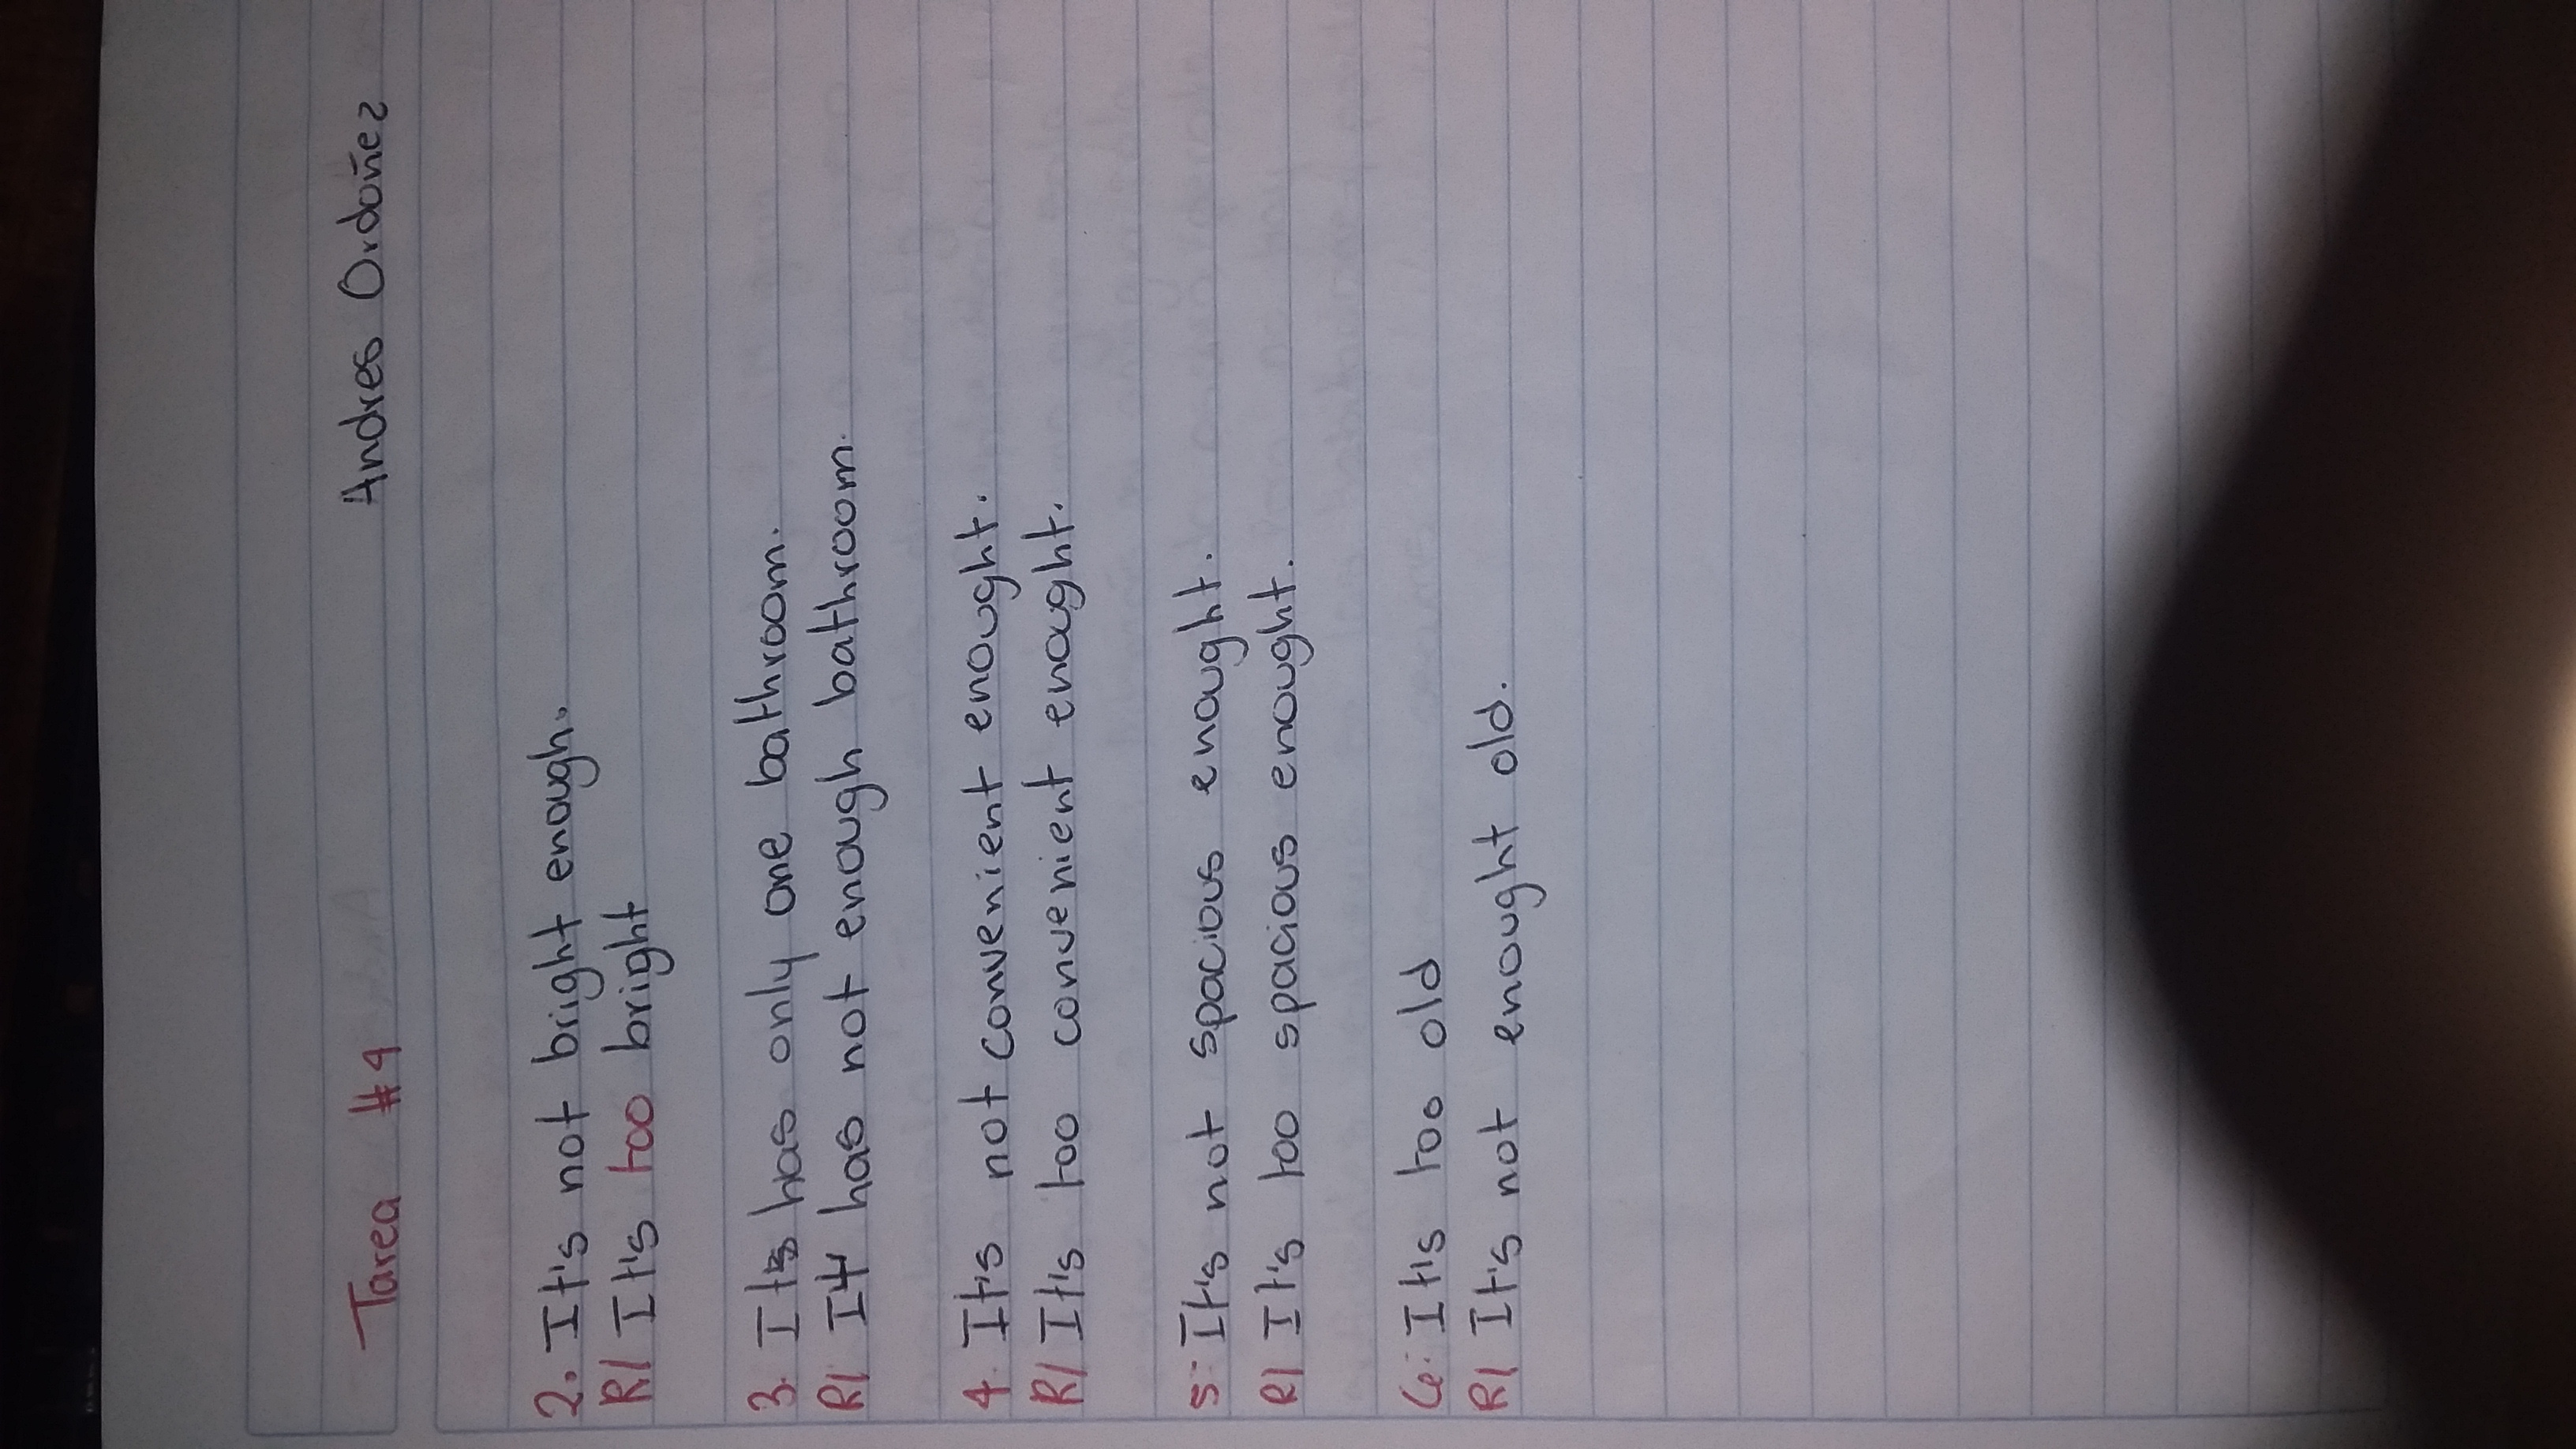 Tarea #4
Andres Ordoñez
2. It's not bright enough.
R/ It's too bright
3. It has only one bathroom.
R/ It has not enough bathroom.
4. It's not convenient enought.
R/ It's too convenient enought.
5. It's not spacious enought.
R/ It's too spacious enought.
6. It's too old
R/ It's not enought old.